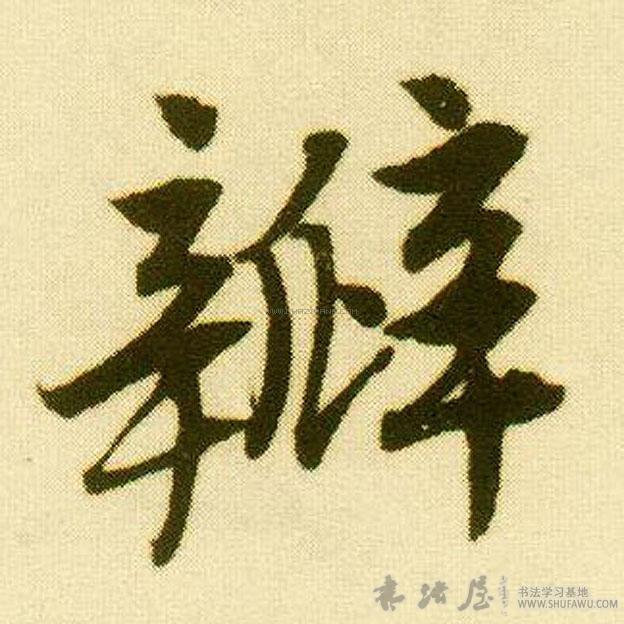 瓣
书法屋
书法学习基地
WWW.SHUFAWU.COM